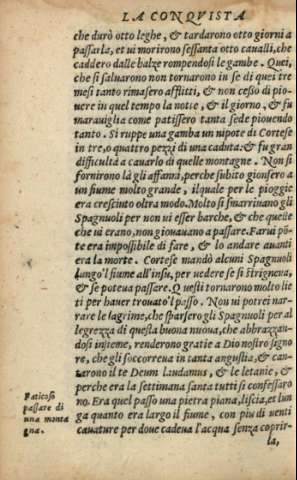 LA CONQVISTA
che durò otto leghe, & tardarono otto giorni a
passarla, et ui morirono sessanta otto caualli, che
caddero dalle balze rompendosi le gambe. Quei,
che si saluarono non tornarono in se di quei tre
mesi tanto rimasero afflitti, & non cessò di pio-
uere in quel tempo la notte, & il giorno, & fu
marauiglia come patissero tanta sede piouendo
tanto. Si ruppe una gamba un nipote di Cortese
in tre, o quattro pezzi di una caduta: & fu gran
difficultà a cauarlo di quelle montagne. Non si
fornirono là gli affanni, perche subito gionsero a
un fiume molto grande, il quale per le pioggie
era cresciuto oltra modo. Molto si smarriuano gli
Spagnuoli per non ui esser barche, & che quelle
che ui erano, non giouauano a passare. Farui põ-
te era impossibile di fare, & lo andare auanti
era la morte. Cortese mandò alcuni Spagnuoli
lungo'l fiume all'insu, per uedere se si stringeua,
& se poteua passare. Questi tornarono molto lie
ti per hauer trouato'l passo. Non ui potrei nar-
rare le lagrime, che sparsero gli Spagnuoli per al
legrezza di questa buona nuoua, che abbrazzan-
dosi insieme, renderono gratie a Dio nostro signo
re, che gli soccorreua in tanta angustia, & can-
tarono il te Deum laudamus, & le letanie, &
perche era la settimana santa tutti si confessaro
no. Era quel passo una pietra piana, liscia, et lun
ga quanto era largo il fiume, con piu di uenti
cauature per doue cadeua l'acqua senza coprir-
la,
Faticoso
passare di
una monta
gna.